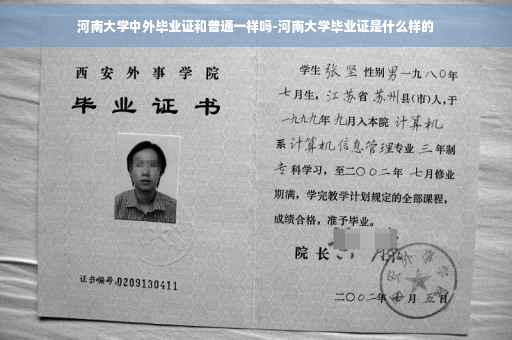 河南大学中外毕业证和普通一样吗-河南大学毕业证是什么样的
西安外事学院
毕业证书
证书编号:0209130411
学生 张坚 性别 男 一九八〇年
七月生，江苏省 苏州县(市)人，于
一九九九年九月入本院 计算机
系 计算机信息管理专业 三 年制
专科学习，至二〇〇二年 七月修业
期满，学完教学计划规定的全部课程，
成绩合格，准予毕业。
院长
二〇〇二年 月 五日